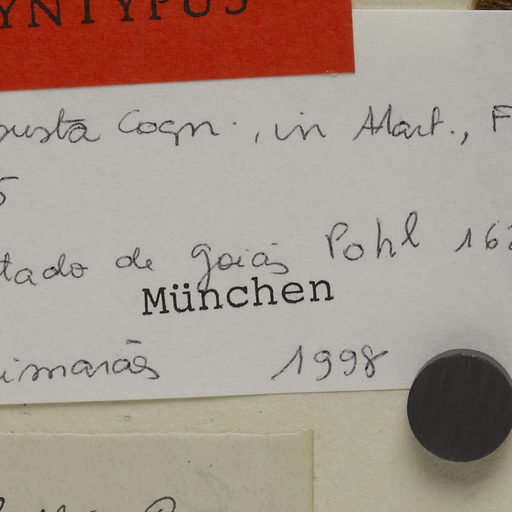 YNTYPUS
busta Cogn., in Mart., F
5
tado de Goiás Pohl 162
München
imarães 1998